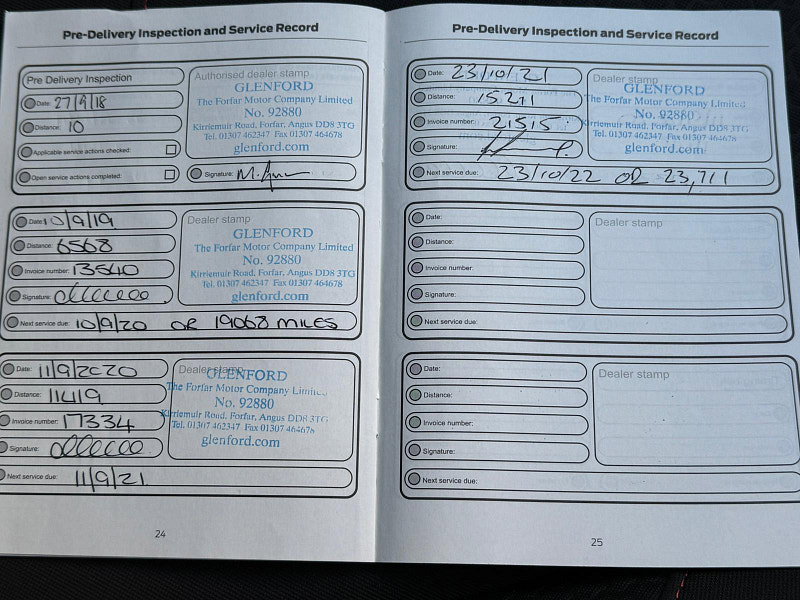 Pre-Delivery Inspection and Service Record
Pre Delivery Inspection
Date: 27/9/18
Distance: 10
Applicable service actions checked:
Open service actions completed:
Authorised dealer stamp
GLENFORD
The Forfar Motor Company Limited
No. 92880
Kirriemuir Road, Forfar, Angus DD8 3TG
Tel. 01307 462347 Fax 01307 464678
glenford.com
Signature:
Date: 10/9/19
Distance: 6568
Invoice number: 13540
Signature:
Dealer stamp
GLENFORD
The Forfar Motor Company Limited
No. 92880
Kirriemuir Road, Forfar, Angus DD8 3TG
Tel. 01307 462347 Fax 01307 464678
glenford.com
Next service due: 10/9/20 OR 19068 MILES
Date: 11/9/2020
Distance: 11419
Invoice number: 17334
Signature:
Dealer stamp
GLENFORD
The Forfar Motor Company Limited
No. 92880
Kirriemuir Road, Forfar, Angus DD8 3TG
Tel. 01307 462347 Fax 01307 464678
glenford.com
Next service due: 11/9/21
24
Pre-Delivery Inspection and Service Record
Date: 23/10/21
Distance: 15211
Invoice number: 21515
Signature:
Dealer stamp
GLENFORD
The Forfar Motor Company Limited
No. 92880
Kirriemuir Road, Forfar, Angus DD8 3TG
Tel. 01307 462347 Fax 01307 464678
glenford.com
Next service due: 23/10/22 OR 23,711
Date:
Distance:
Invoice number:
Signature:
Dealer stamp
Next service due:
Date:
Distance:
Invoice number:
Signature:
Dealer stamp
Next service due:
25